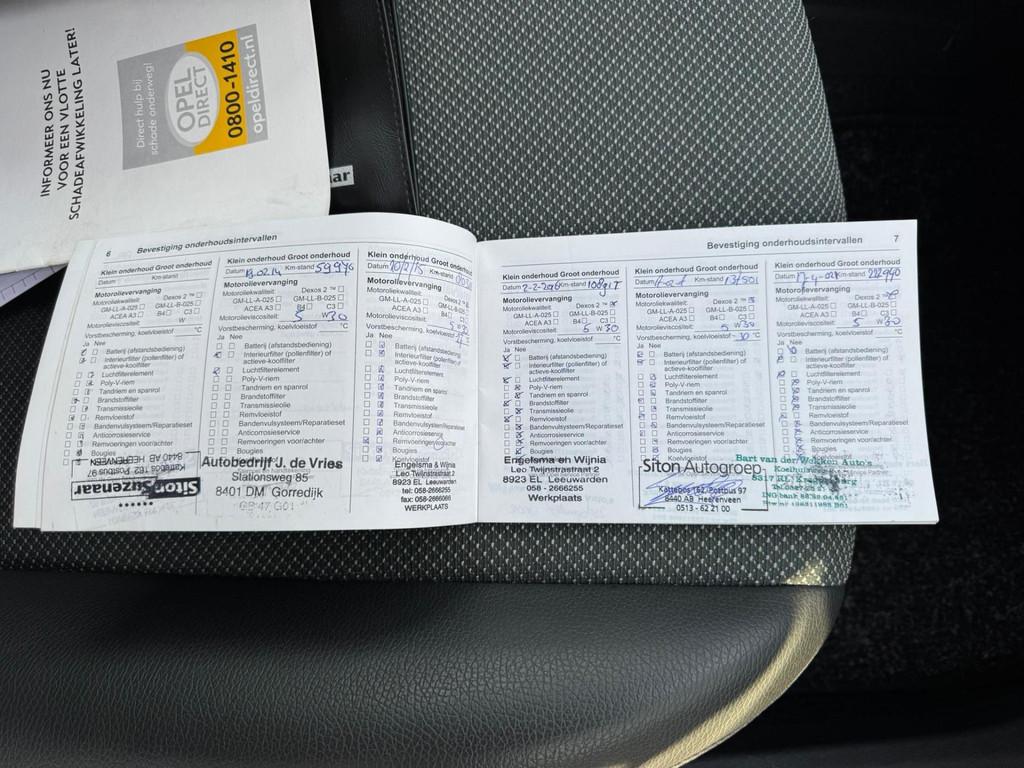 INFORMEER ONS NU
VOOR EEN VLOTTE
SCHADEAFWIKKELING LATER!
Direct hulp bij
schade onderweg!
OPEL
DIRECT
0800-1410
opeldirect.nl
ar
6 Bevestiging onderhoudsintervallen
Klein onderhoud Groot onderhoud
Datum Km-stand
Motorolievervanging
Motoroliekwaliteit: Dexos 2 ™
GM-LL-A-025 GM-LL-B-025
ACEA A3 B4 C3
Motorolieviscositeit: W
Vorstbescherming, koelvloeistof °C
Ja Nee
Batterij (afstandsbediening)
Interieurfilter (pollenfilter) of
actieve-koolfilter
Luchtfilterelement
Poly-V-riem
Tandriem en spanrol
Brandstoffilter
Transmissieolie
Remvloeistof
Bandenvulsysteem/Reparatieset
Anticorrosieservice
Remvoeringen voor/achter
Bougies
Siton Suzenaar
Kattebos 162 Postbus 97
8440 AB HEERENVEEN
Klein onderhoud Groot onderhoud
Datum 13.02.14 Km-stand 59976
Motorolievervanging
Motoroliekwaliteit: Dexos 2 ™
GM-LL-A-025 GM-LL-B-025
ACEA A3 B4 C3
Motorolieviscositeit: 5 W 30
Vorstbescherming, koelvloeistof °C
Ja Nee
Batterij (afstandsbediening)
Interieurfilter (pollenfilter) of
actieve-koolfilter
Luchtfilterelement
Poly-V-riem
Tandriem en spanrol
Brandstoffilter
Transmissieolie
Remvloeistof
Bandenvulsysteem/Reparatieset
Anticorrosieservice
Remvoeringen voor/achter
Bougies
Autobedrijf J. de Vries
Stationsweg 85
8401 DM Gorredijk
Klein onderhoud Groot onderhoud
Datum 10/2/15 Km-stand
Motorolievervanging
Motoroliekwaliteit: Dexos 2
GM-LL-A-025 GM-LL-B-025
ACEA A3 B4 C3
Motorolieviscositeit:
Vorstbescherming, koelvloeistof
Ja Nee
Batterij (afstandsbediening)
Interieurfilter (pollenfilter) of
actieve-koolfilter
Luchtfilterelement
Poly-V-riem
Tandriem en spanrol
Brandstoffilter
Transmissieolie
Remvloeistof
Bandenvulsysteem/Reparatieset
Anticorrosieservice
Remvoeringen voor/achter
Bougies
Engelsma & Wijnia
Leo Twijnstrastraat 2
8923 EL Leeuwarden
tel: 058-2666255
fax: 058-2666086
WERKPLAATS
Bevestiging onderhoudsintervallen 7
Klein onderhoud Groot onderhoud
Datum 2-2-2016 Km-stand
Motorolievervanging
Motoroliekwaliteit: Dexos 2 ™
GM-LL-A-025 GM-LL-B-025
ACEA A3 B4 C3
Motorolieviscositeit: 5 W 30
Vorstbescherming, koelvloeistof °C
Ja Nee
Batterij (afstandsbediening)
Interieurfilter (pollenfilter) of
actieve-koolfilter
Luchtfilterelement
Poly-V-riem
Tandriem en spanrol
Brandstoffilter
Transmissieolie
Remvloeistof
Bandenvulsysteem/Reparatieset
Anticorrosieservice
Remvoeringen voor/achter
Bougies
Engelsma en Wijnia
Leo Twijnstrastraat 2
8923 EL Leeuwarden
058 - 2666255
Werkplaats
Klein onderhoud Groot onderhoud
Datum Km-stand 131501
Motorolievervanging
Motoroliekwaliteit: Dexos 2 ™
GM-LL-A-025 GM-LL-B-025
ACEA A3 B4 C3
Motorolieviscositeit: 5 W 30
Vorstbescherming, koelvloeistof -30 °C
Ja Nee
Batterij (afstandsbediening)
Interieurfilter (pollenfilter) of
actieve-koolfilter
Luchtfilterelement
Poly-V-riem
Tandriem en spanrol
Brandstoffilter
Transmissieolie
Remvloeistof
Bandenvulsysteem/Reparatieset
Anticorrosieservice
Remvoeringen voor/achter
Bougies
Siton Autogroep
Kattebos 162, Postbus 97
8440 AB Heerenveen
0513 - 62 21 00
Klein onderhoud Groot onderhoud
Datum Km-stand
Motorolievervanging
Motoroliekwaliteit: Dexos 2
GM-LL-A-025 GM-LL-B-025
ACEA A3 B4 C3
Motorolieviscositeit: 5 W 30
Vorstbescherming, koelvloeistof °C
Ja Nee
Batterij (afstandsbediening)
Interieurfilter (pollenfilter) of
actieve-koolfilter
Luchtfilterelement
Poly-V-riem
Tandriem en spanrol
Brandstoffilter
Transmissieolie
Remvloeistof
Bandenvulsysteem/Reparatieset
Anticorrosieservice
Remvoeringen voor/achter
Bougies
Bart van der Wekken Auto's